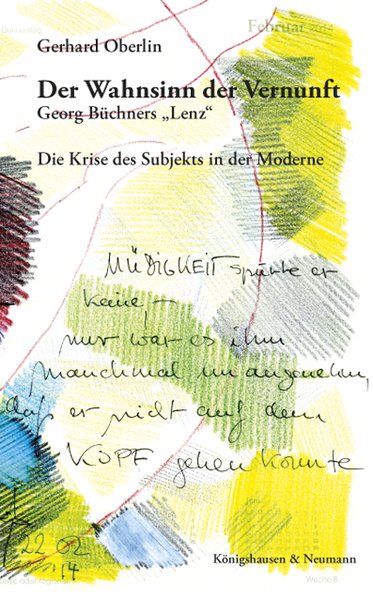 Donnerstag
Februar 2014
Gerhard Oberlin
Der Wahnsinn der Vernunft
Georg Büchners „Lenz“
Die Krise des Subjekts in der Moderne
MÜDIGKEIT spürte er
keine,
nur war es ihm
manchmal unangenehm,
daß er nicht auf dem
KOPF gehen konnte
22 02
'14
Königshausen & Neumann
Woche 8